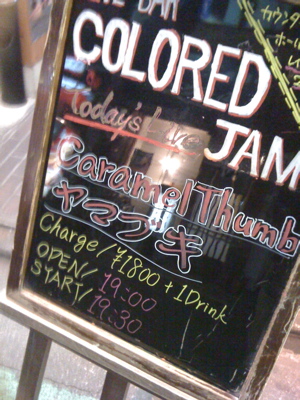 BAR
COLORED
JAM
Today's Live
Caramel Thumb
ヤマブキ
Charge/¥1800+1Drink
OPEN/19:00
START/19:30
カウンタ
ホール